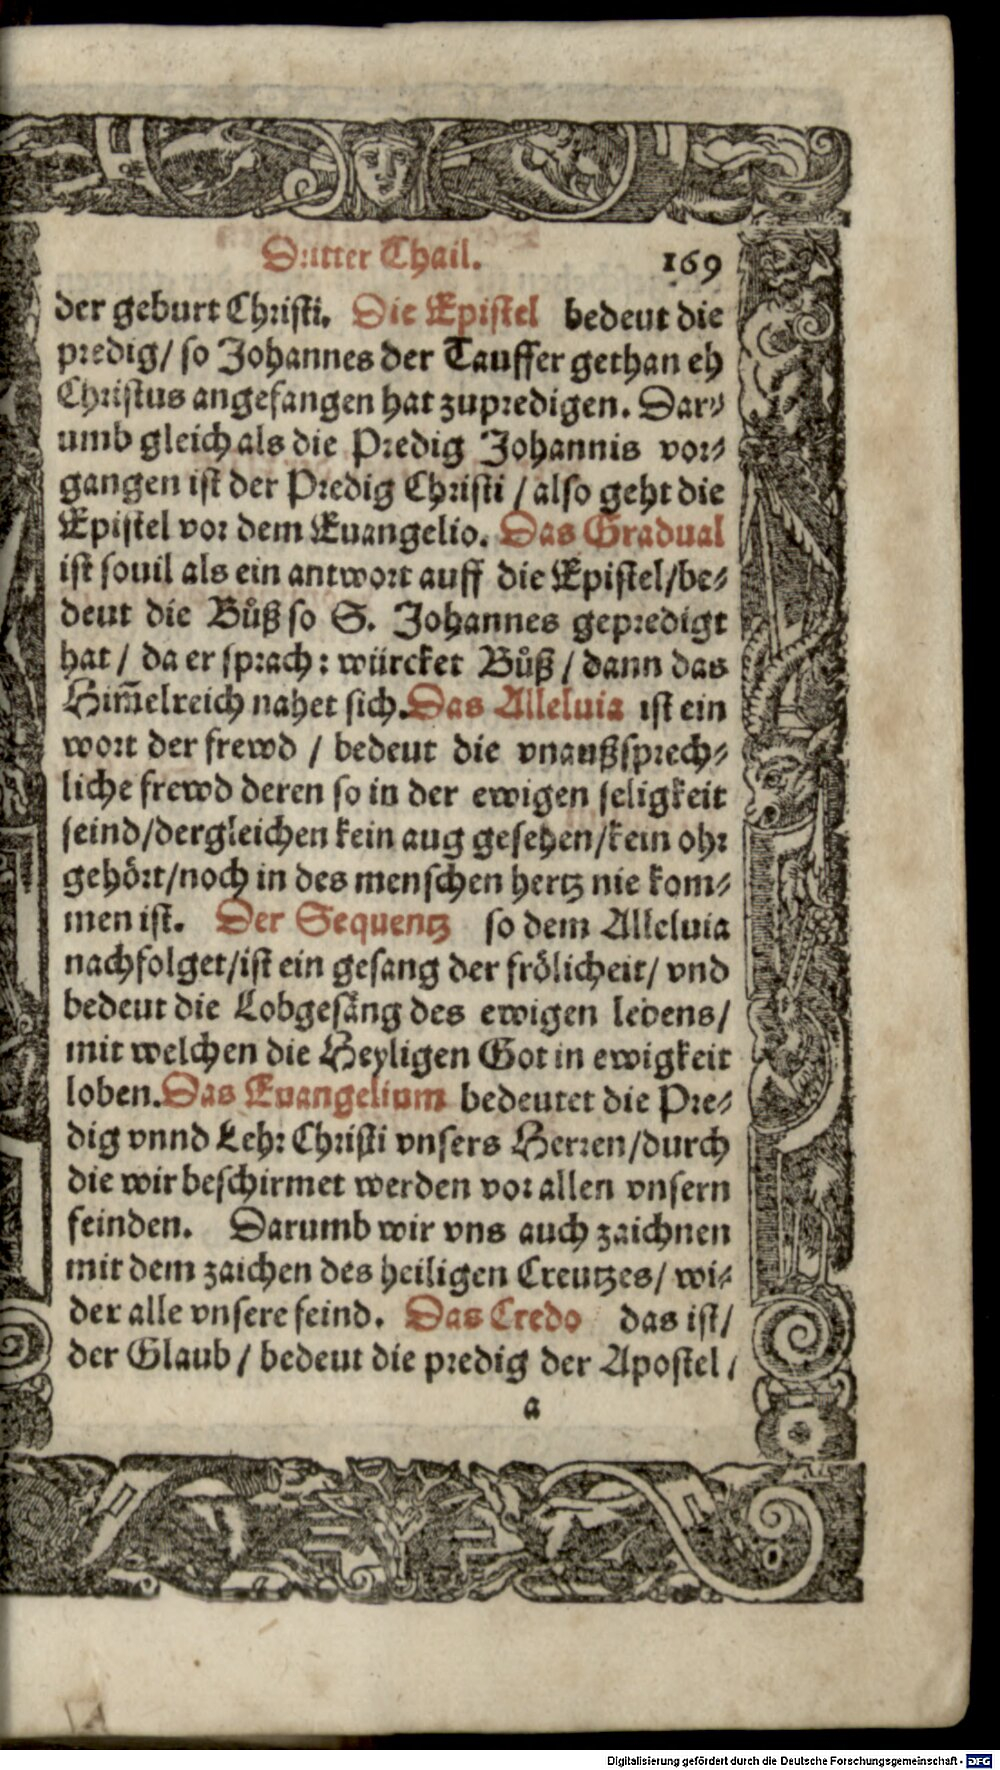 Dritter Thail. 169
der geburt Christi. Die Epistel bedeut die
predig/ so Johannes der Tauffer gethan eh
Christus angefangen hat zupredigen. Dar⸗
umb gleich als die Predig Johannis vor⸗
gangen ist der Predig Christi / also geht die
Epistel vor dem Euangelio. Das Gradual
ist souil als ein antwort auff die Epistel/be⸗
deut die Bůß so S. Johannes gepredigt
hat / da er sprach: würcket Bůß / dann das
Him̃elreich nahet sich. Das Alleluia ist ein
wort der frewd / bedeut die vnaußsprech⸗
liche frewd deren so in der ewigen seligkeit
seind/dergleichen kein aug gesehen/kein ohr
gehört/noch in des menschen hertz nie kom⸗
men ist. Der Sequentz so dem Alleluia
nachfolget/ist ein gesang der frölicheit/ vnd
bedeut die Lobgesäng des ewigen lebens/
mit welchen die Heyligen Got in ewigkeit
loben. Das Euangelium bedeutet die Pre⸗
dig vnnd Lehr Christi vnsers Herren/durch
die wir beschirmet werden vor allen vnsern
feinden. Darumb wir vns auch zaichnen
mit dem zaichen des heiligen Creutzes/ wi⸗
der alle vnsere feind. Das Credo das ist/
der Glaub / bedeut die predig der Apostel /
a
Digitalisierung gefördert durch die Deutsche Forschungsgemeinschaft - DFG